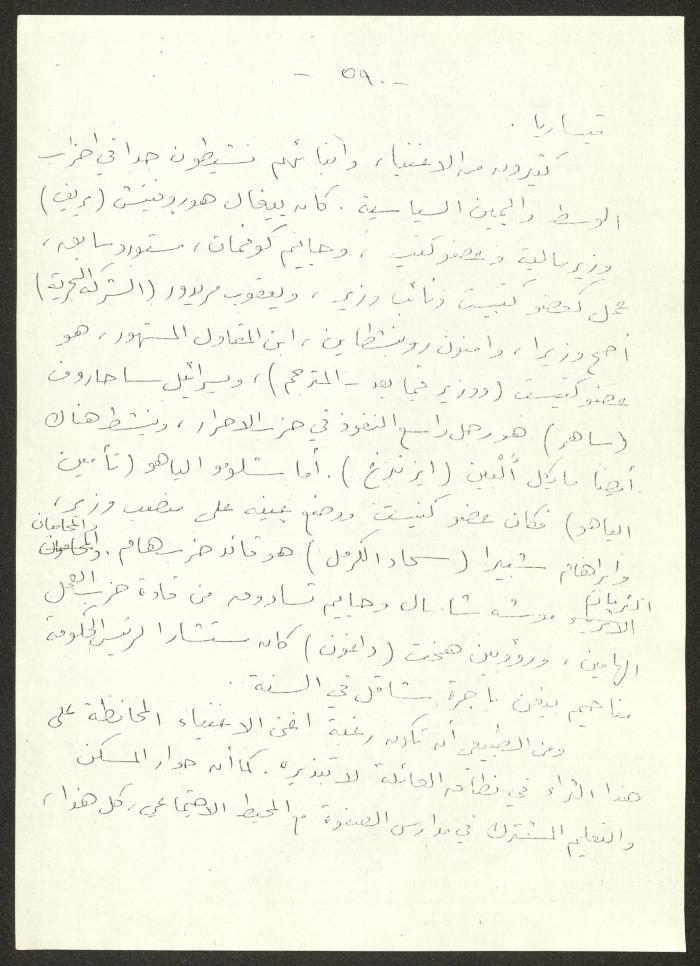 - ٥٩٠ -
قيساريا .
كثيرون من الاغنياء وأبنائهم نشيطون جدا في احزاب
الوسط واليمين السياسية . كان ييغال هوروفيتش (يريف)
وزير مالية وعضو كنيست ، وحاييم كوفمان ، مستورد سابق ،
عمل كعضو كنيست ونائب وزير ، ويعقوب مريدور (الشركة البحرية)
أصبح وزيرا ، وامنون روبنشطاين ، ابن المقاول المشهور ، هو
عضو كنيست (ووزير فيما بعد - المترجم) ، ويسرائيل ساحاروف
(ساهر) هو رجل واسع النفوذ في حزب الاحرار ، وينشط هناك
أيضا مايكل ألبين (ايزنبرغ) . أما شلومو الياهو (تأمين
الياهو) فكان عضو كنيست ووضع عينه على منصب وزير ،
وابراهام شبيرا (سجاد الكرمل) هو قائد حزب هام . والمحاميان
الثريان موشه شاحال وحاييم تسادوق من قادة حزب العمل
الهامين ، ورؤوبين هيخت (داغون) كان مستشارا لرئيس الحكومة
مناحيم بيغن بأجرة شاقل في السنة ..
ومن الطبيعي أن تكون رغبة اغنى الاغنياء المحافظة على
هذا الثراء في نطاق العائلة لا تبذيره . كما أن جوار المسكن
والتعليم المشترك في مدارس الصفوة مع المحيط الاجتماعي ، كل هذا ،